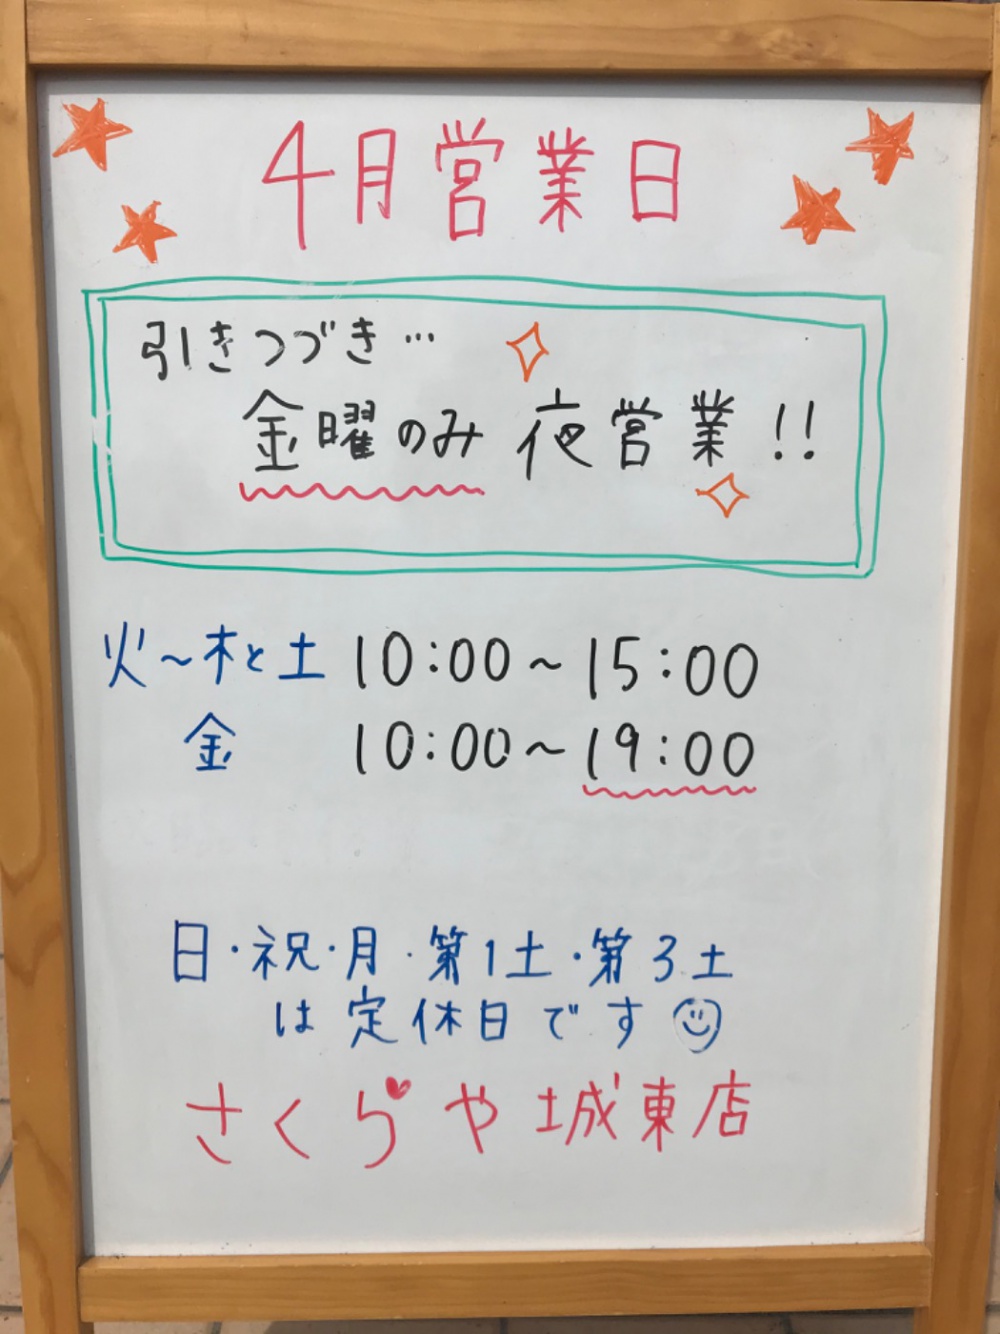 4月営業日
引きつづき…
金曜のみ 夜営業!!
火~木と土 10:00~15:00
金 10:00~19:00
日・祝・月・第1土・第3土
は定休日です
さくらや城東店